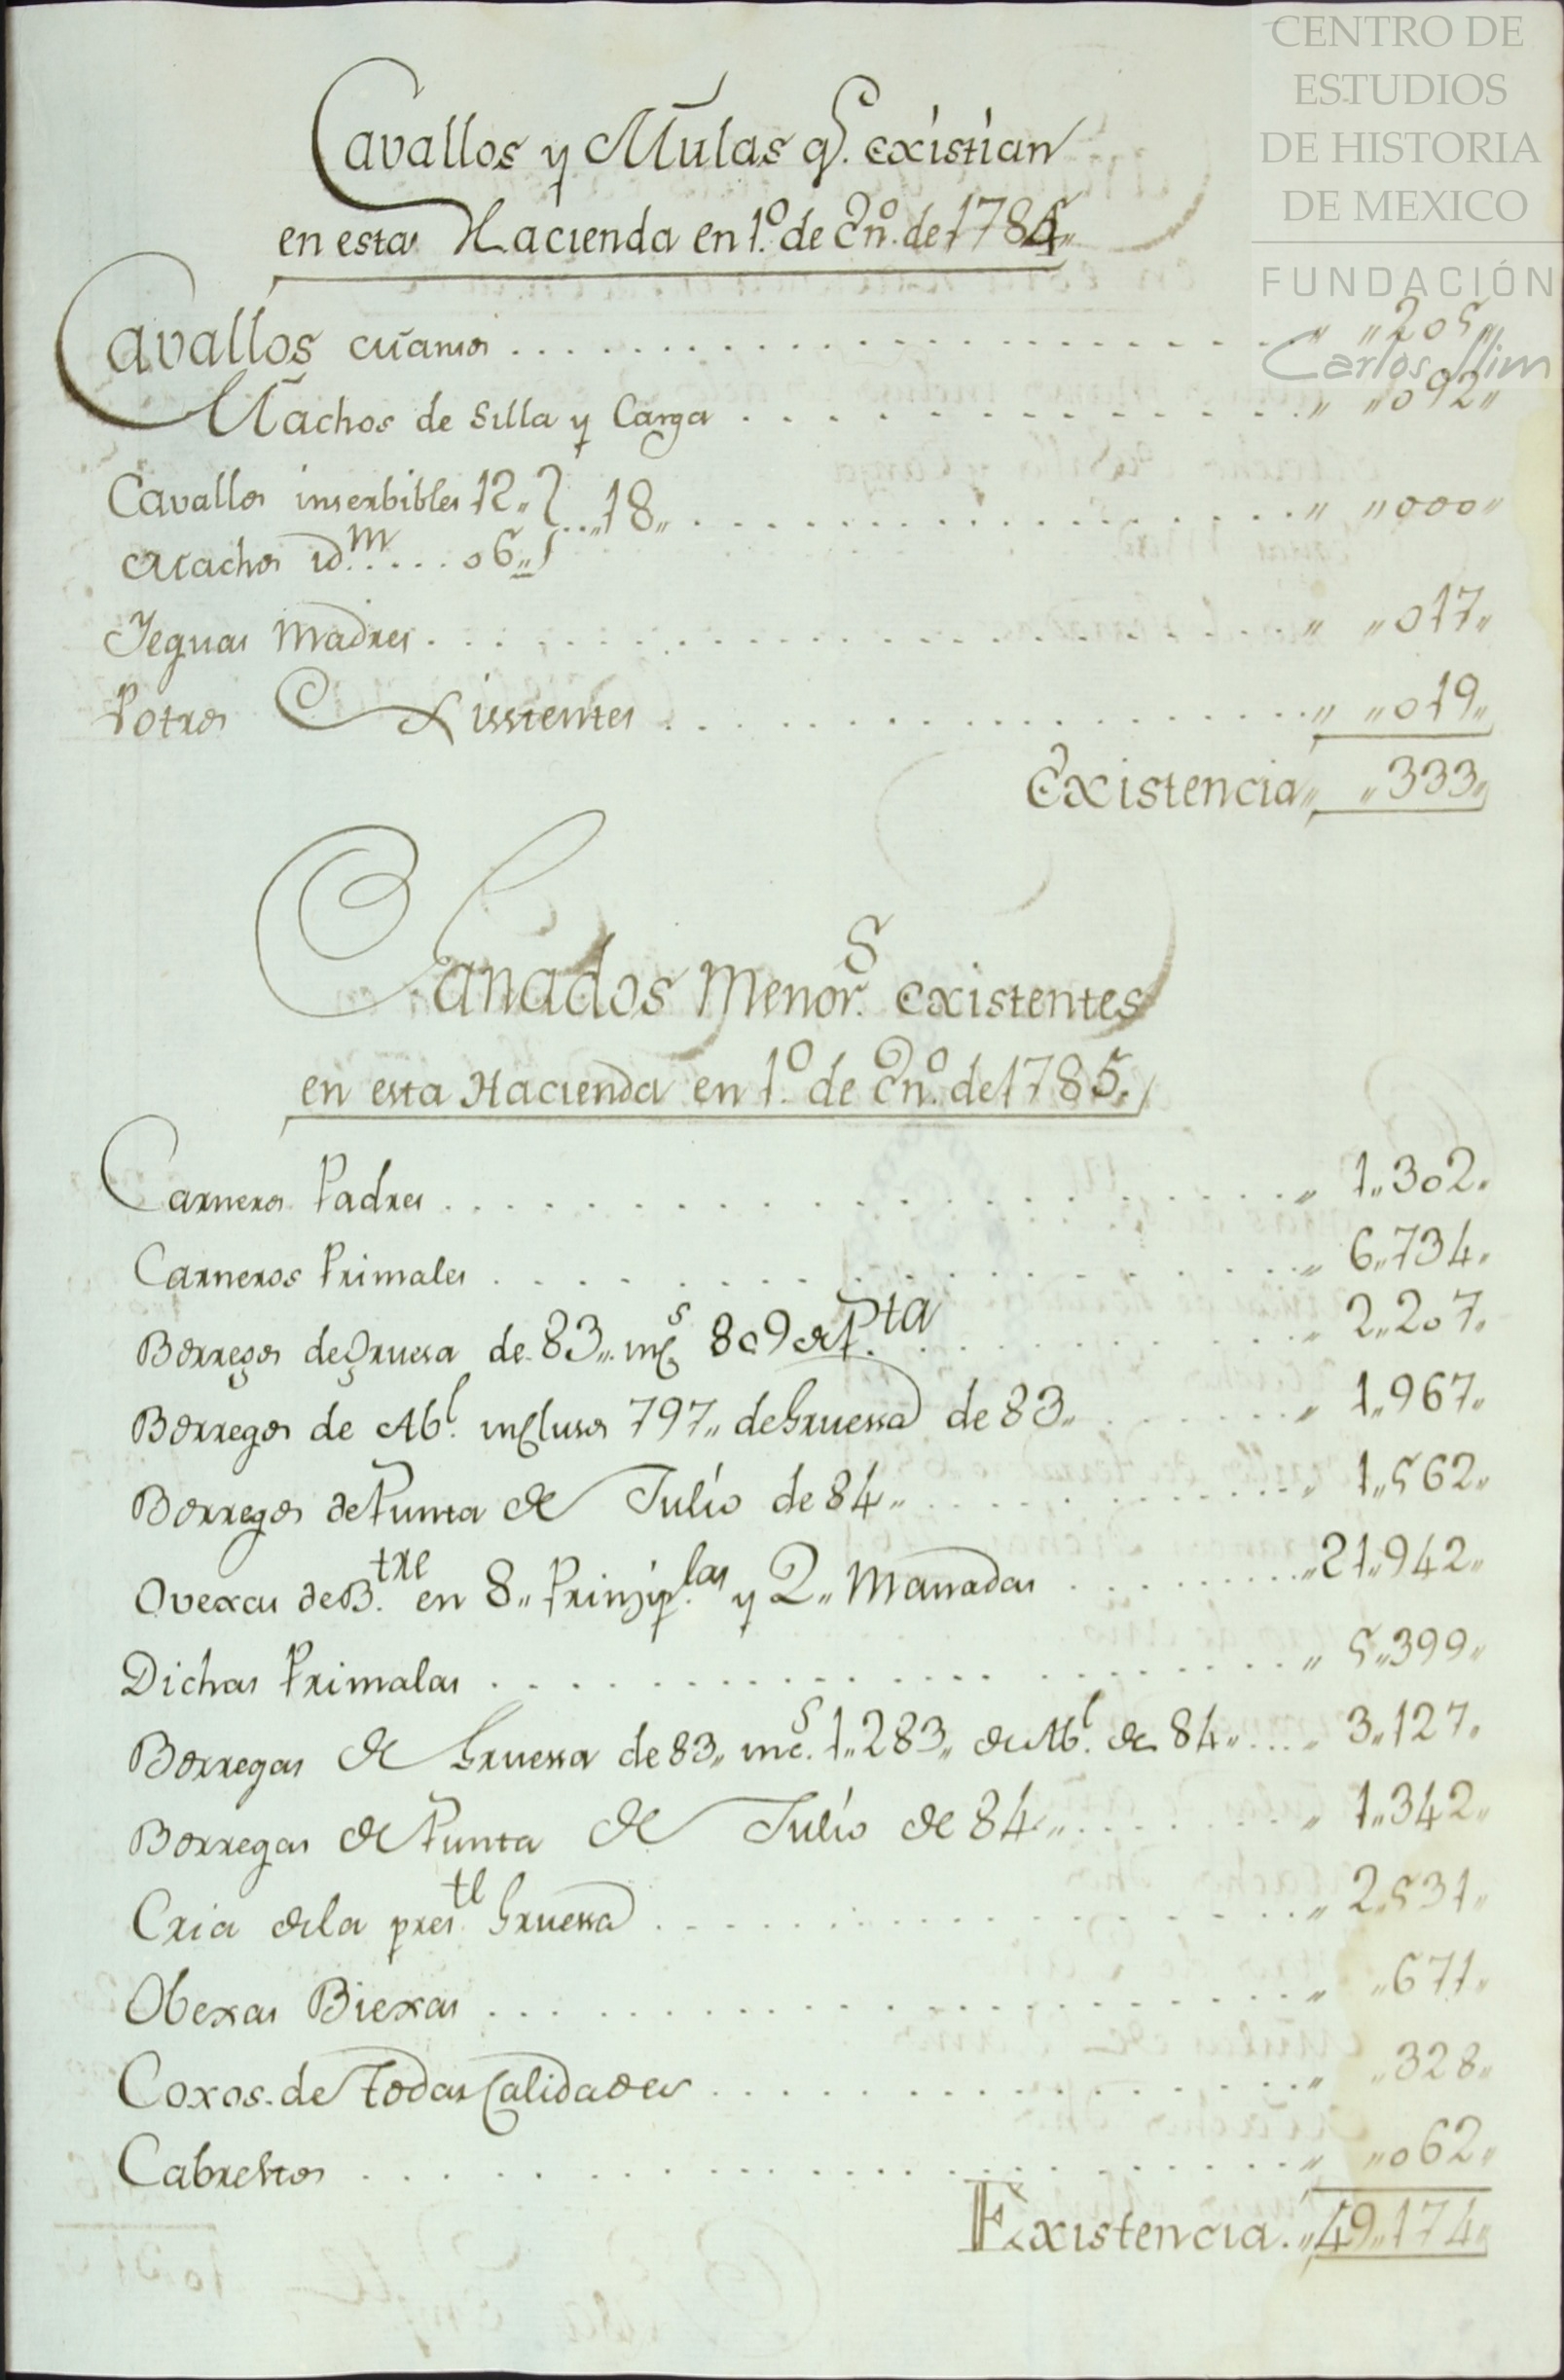 CENTRO DE
ESTUDIOS
DE HISTORIA
DE MEXICO
FUNDACIÓN
Carlos Slim
Cavallos y Mulas q.e existian
en esta Hacienda en 1.o de En.o de 1785„
Cavallos . . . „ „205„
Machos de Silla y Carga . . . „ „092„
Cavallos inserbibles 12„ } . . „18„ . . . „ „000„
Machos id.m . . . . 06„
Yeguas Madres . . . „ „017„
Potros Existentes . . . „ „019„
Existencia „ „333„
Ganados Menor.s existentes
en esta Hacienda en 1.o de En.o de 1785.
Carneros Padres . . . „ 1„302„
Carneros Primales . . . „ 6„734„
Borregos de Gruesa de 83„ inc.s 809 de P.ta . . . „ 2„207„
Borregos de Ab.l inclusos 797„ de Gruessa de 83„ . . . „ 1„967„
Borregos de Punta de Julio de 84„ . . . „ 1„562„
Ovexas de B.tre en 8„ Principlas y 2„ Manadas . . . „21„942„
Dichas Primalas . . . „ 5„399„
Borregas de Gruessa de 83„ inc.s 1„283„ de Ab.l de 84„ . . . „ 3„127„
Borregas de Punta de Julio de 84„ . . . „ 1„342„
Cria dela pres.te Gruessa . . . „ 2„531„
Obexas Biexas . . . „ „671„
Coxos de todas Calidades . . . „ „328„
Cabrestos . . . „ „062„
Existencia. „49„174„